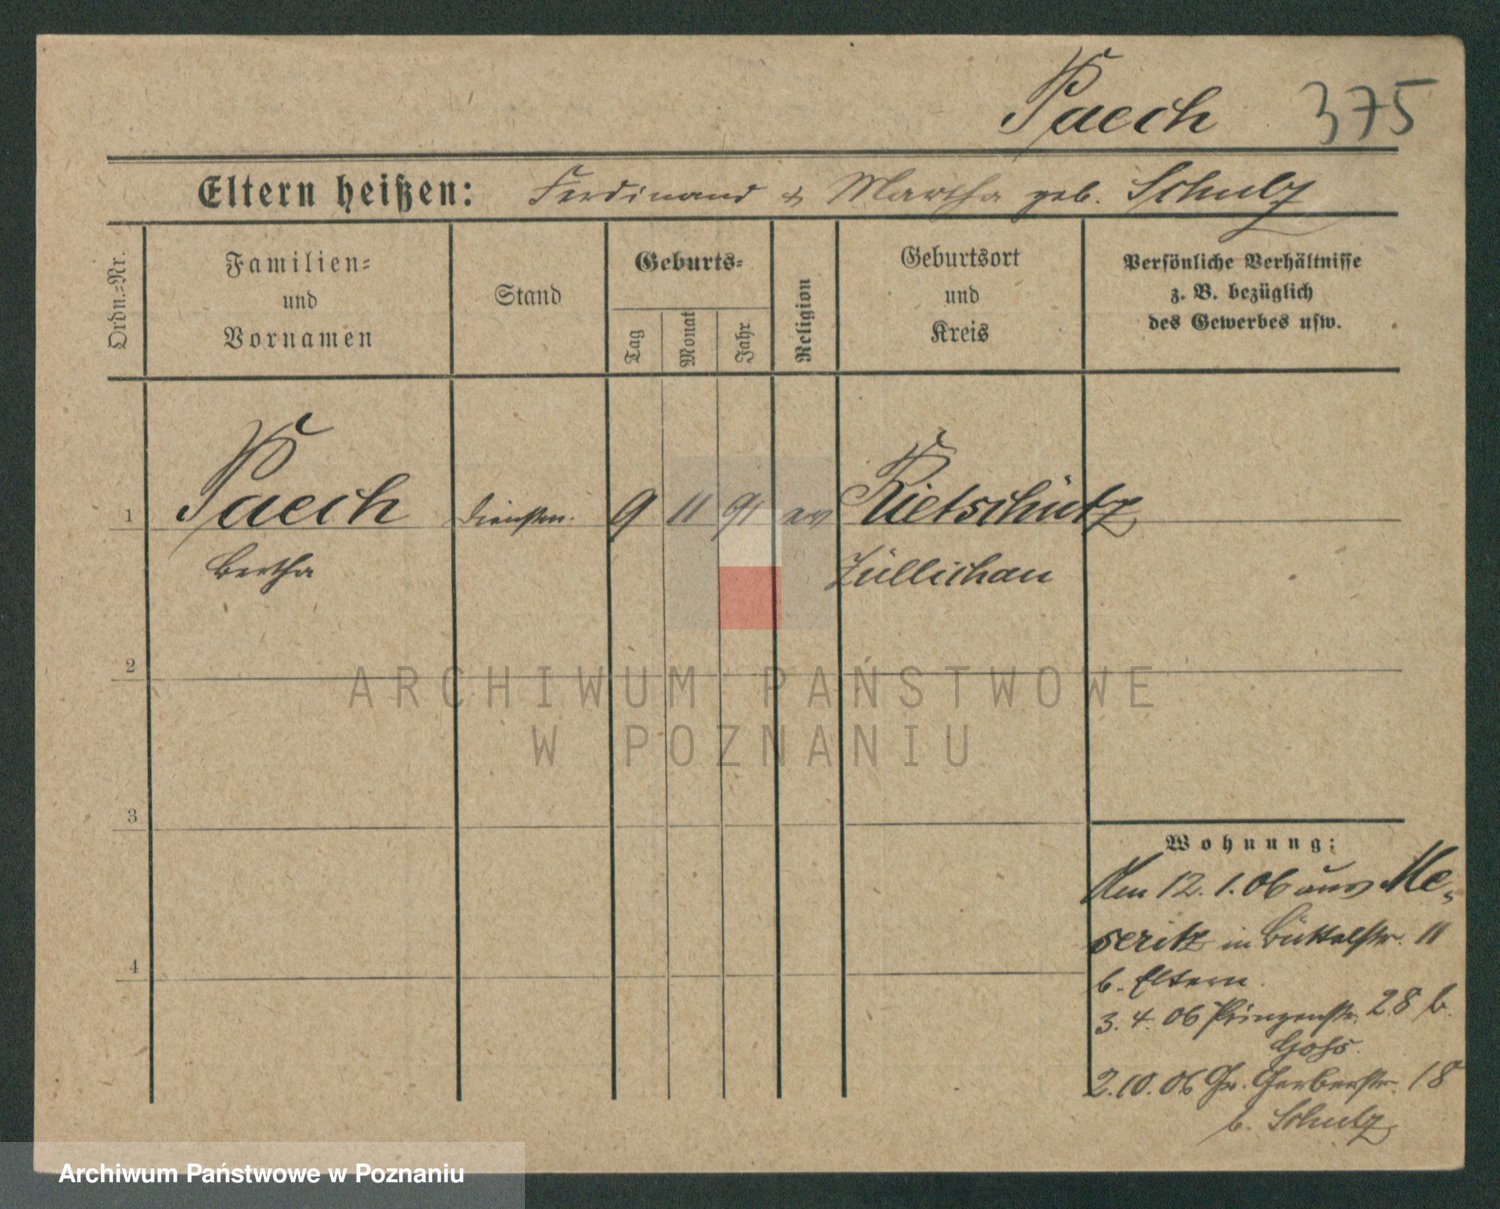 Paech 375
Eltern heißen: Ferdinand & Martha geb. Schulz
Ordn.=Nr.
Familien=
und
Vornamen
Stand
Geburts=
Tag
Monat
Jahr
Religion
Geburtsort
und
Kreis
Persönliche Verhältnisse
z. B. bezüglich
des Gewerbes usw.
1 Paech Dienstm. 9 11 91 ev Rietschütz
Bertha Züllichau
2
ARCHIWUM PAŃSTWOWE
W POZNANIU
3
Wohnung:
Am 12. 1. 06 aus Me-
seritz in Büttelstr. 11
4
b. Eltern.
3. 4. 06 Prinzenstr. 28 b.
2. 10. 06 Gr. Gerberstr. 18
b. Schulz
Archiwum Państwowe w Poznaniu